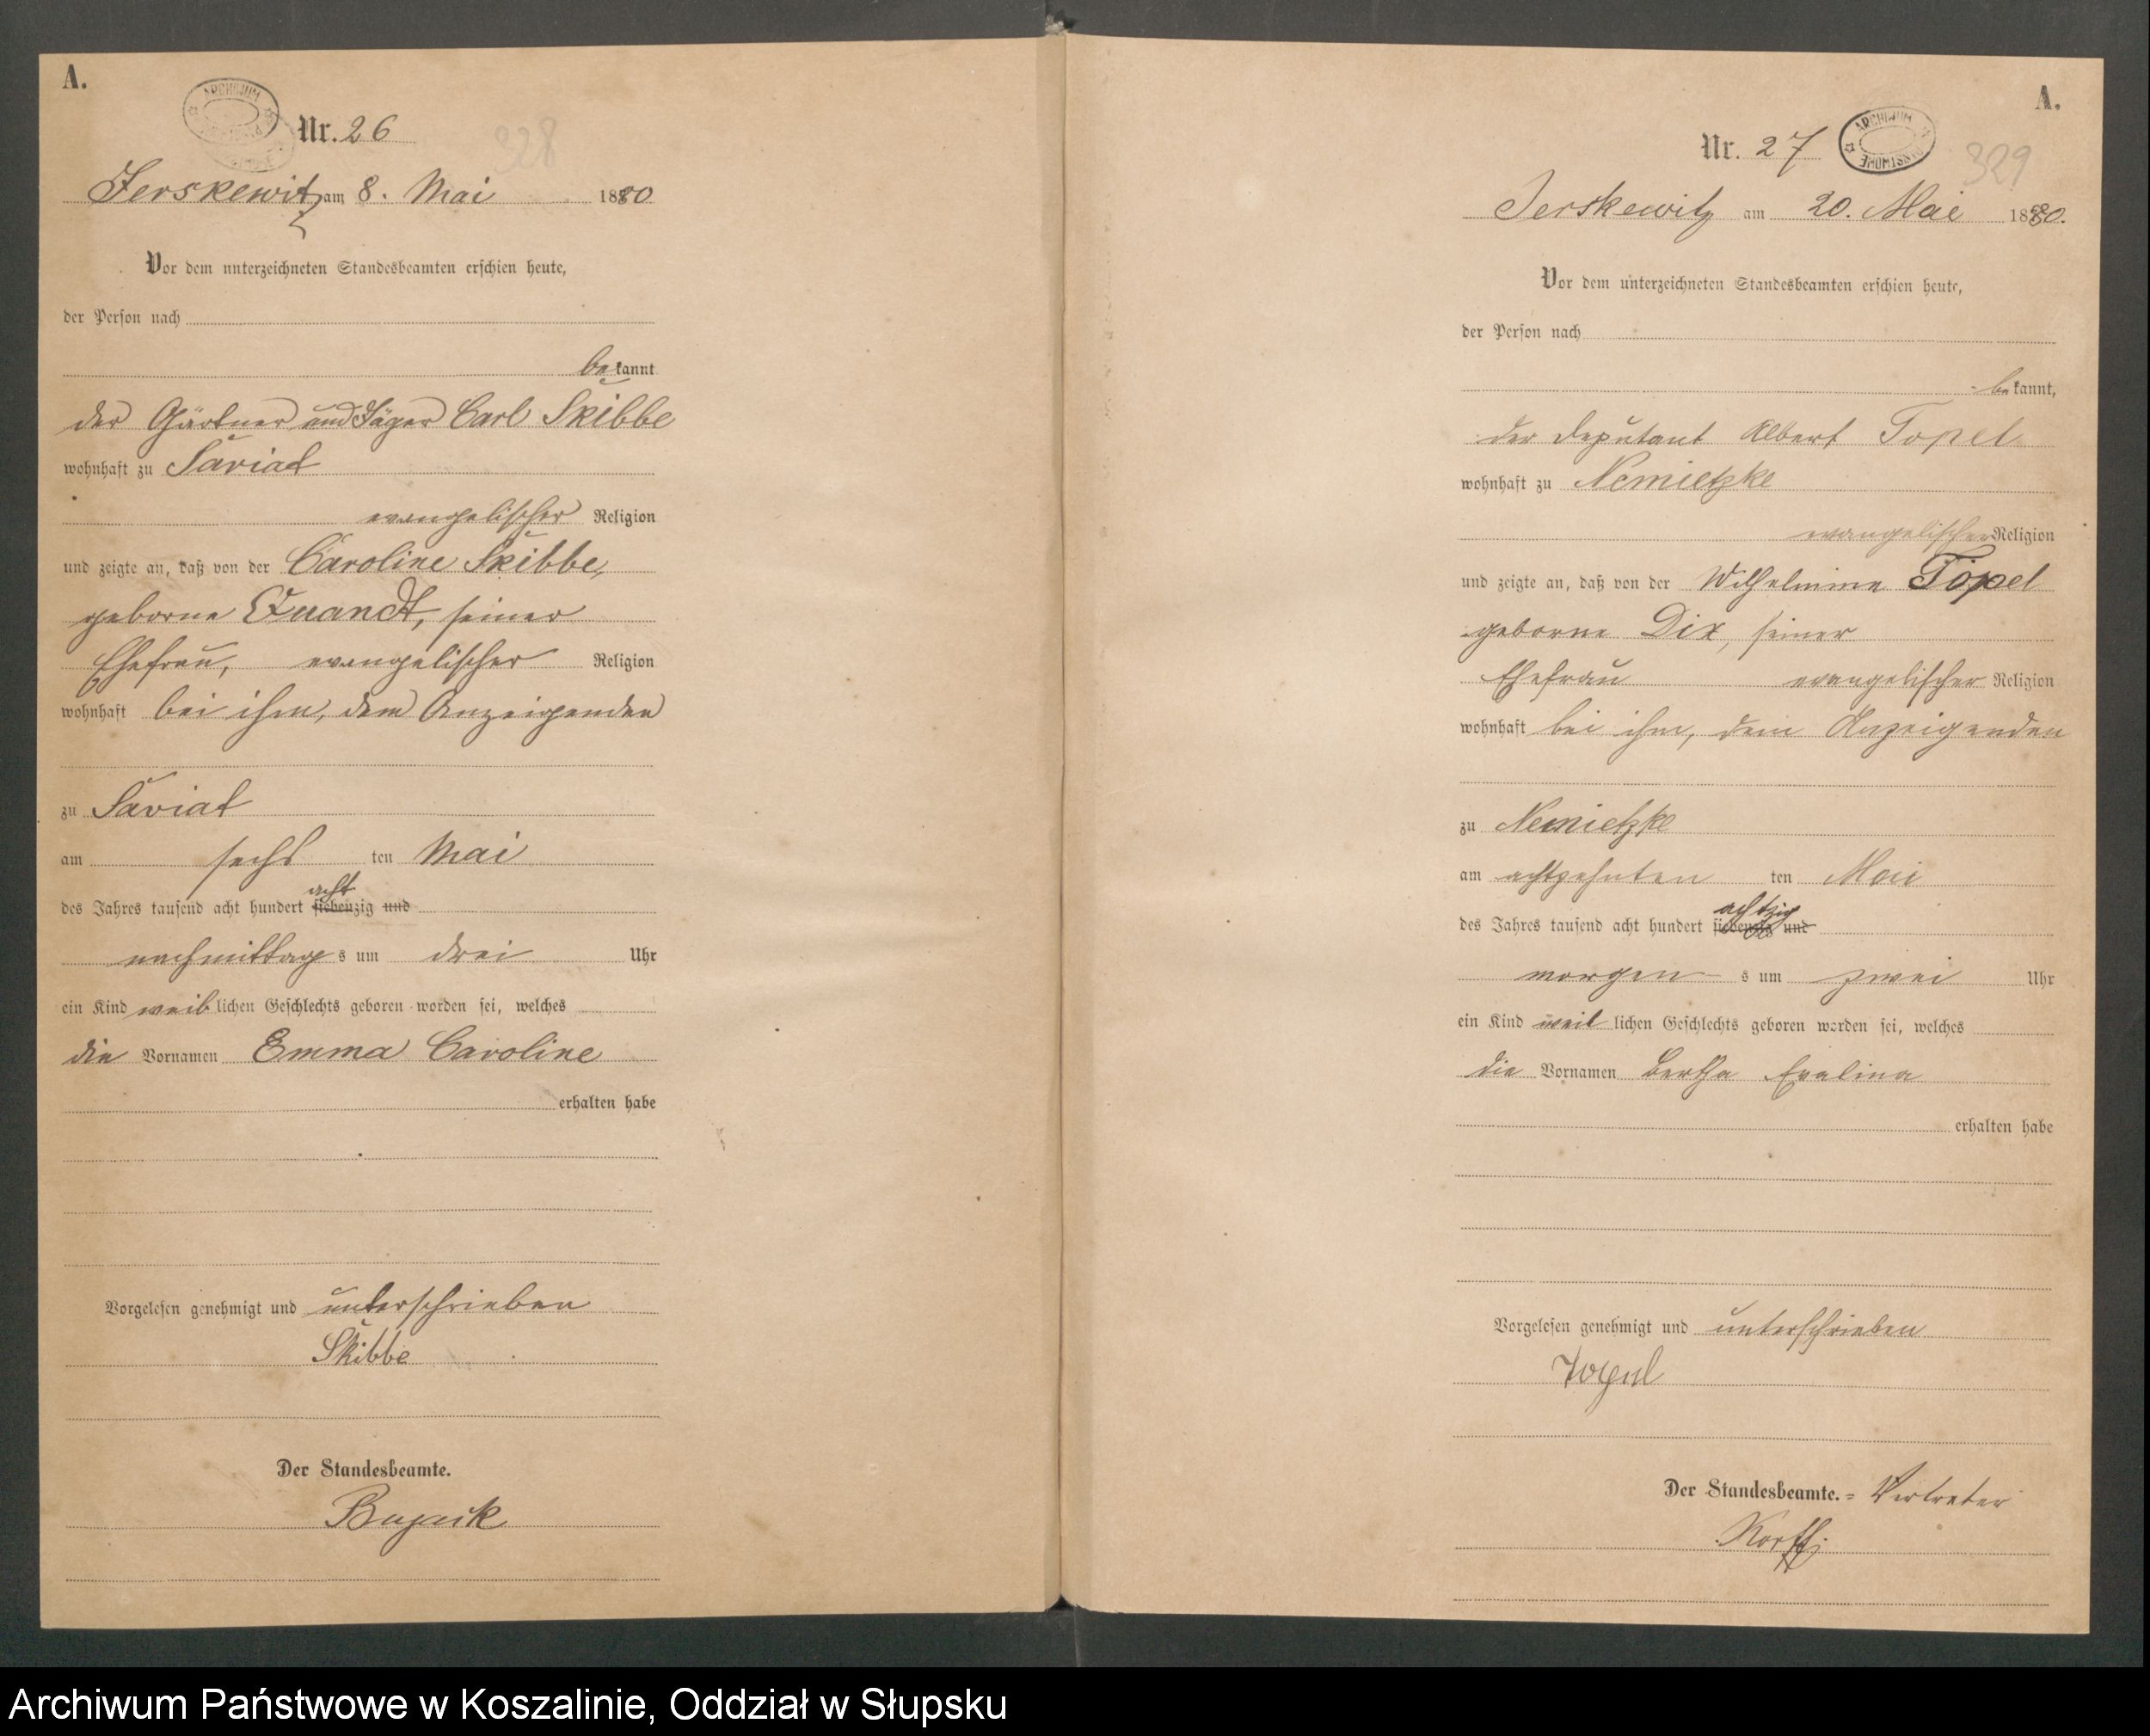 A.
ARCHIWUM
Nr. 26
328
Jerskewitz am 8. Mai 1880
Vor dem unterzeichneten Standesbeamten erschien heute,
der Person nach
bekannt
der Gärtner und Jäger Carl Skibbe
wohnhaft zu Saviat
evangelischer Religion
und zeigte an, daß von der Caroline Skibbe,
geborne Quandt, seiner
Ehefrau, evangelischer Religion
wohnhaft bei ihm, dem Anzeigenden
zu Saviat
am sechs ten Mai
acht
des Jahres tausend acht hundert siebenzig und
nachmittags um drei Uhr
ein Kind weiblichen Geschlechts geboren worden sei, welches
die Vornamen Emma Caroline
erhalten habe
Vorgelesen genehmigt und unterschrieben
Skibbe
Der Standesbeamte.
A.
Nr. 27
ARCHIWUM
329
Jerskewitz am 20. Mai 1880.
Vor dem unterzeichneten Standesbeamten erschien heute,
der Person nach
bekannt,
der Deputant Albert Topel
wohnhaft zu Nemietzke
evangelischer Religion
und zeigte an, daß von der Wilhelmine Topel
geborne Dix, seiner
Ehefrau evangelischer Religion
wohnhaft bei ihm, dem Anzeigenden
zu Nemietzke
am achtzehnten ten Mai
achtzig
des Jahres tausend acht hundert siebenzig und
morgens um zwei Uhr
ein Kind weiblichen Geschlechts geboren worden sei, welches
die Vornamen Bertha Evelina
erhalten habe
Vorgelesen genehmigt und unterschrieben
Topel
Der Standesbeamte. = Vertreter
Korff.
Archiwum Państwowe w Koszalinie, Oddział w Słupsku